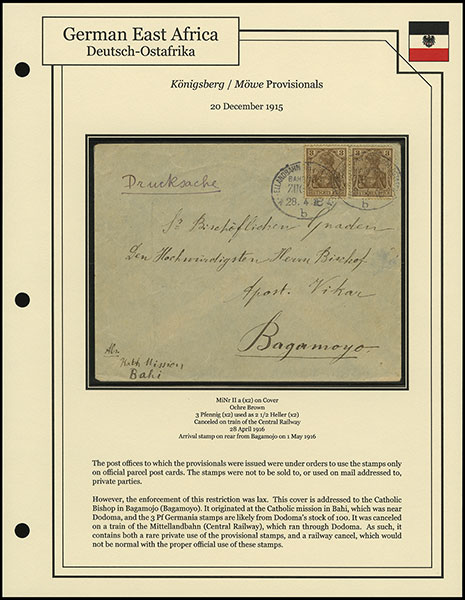 German East Africa
Deutsch-Ostafrika
Königsberg / Möwe Provisionals
20 December 1915
Drucksache
3 3
ZUG
28. 4.
b
b
Sr Bischöflichen Gnaden
den Hochwürdigsten Herrn Bischof
Apost. Vikar
Bagamoyo.
Abs.
Kath. Mission
Bahi
MiNr II a (x2) on Cover
Ochre Brown
3 Pfennig (x2) used as 2 1/2 Heller (x2)
Canceled on train of the Central Railway
28 April 1916
Arrival stamp on rear from Bagamojo on 1 May 1916
The post offices to which the provisionals were issued were under orders to use the stamps only
on official parcel post cards. The stamps were not to be sold to, or used on mail addressed to,
private parties.
However, the enforcement of this restriction was lax. This cover is addressed to the Catholic
Bishop in Bagamojo (Bagamoyo). It originated at the Catholic mission in Bahi, which was near
Dodoma, and the 3 Pf Germania stamps are likely from Dodoma's stock of 100. It was canceled
on a train of the Mittellandbahn (Central Railway), which ran through Dodoma. As such, it
contains both a rare private use of the provisional stamps, and a railway cancel, which would
not be normal with the proper official use of these stamps.